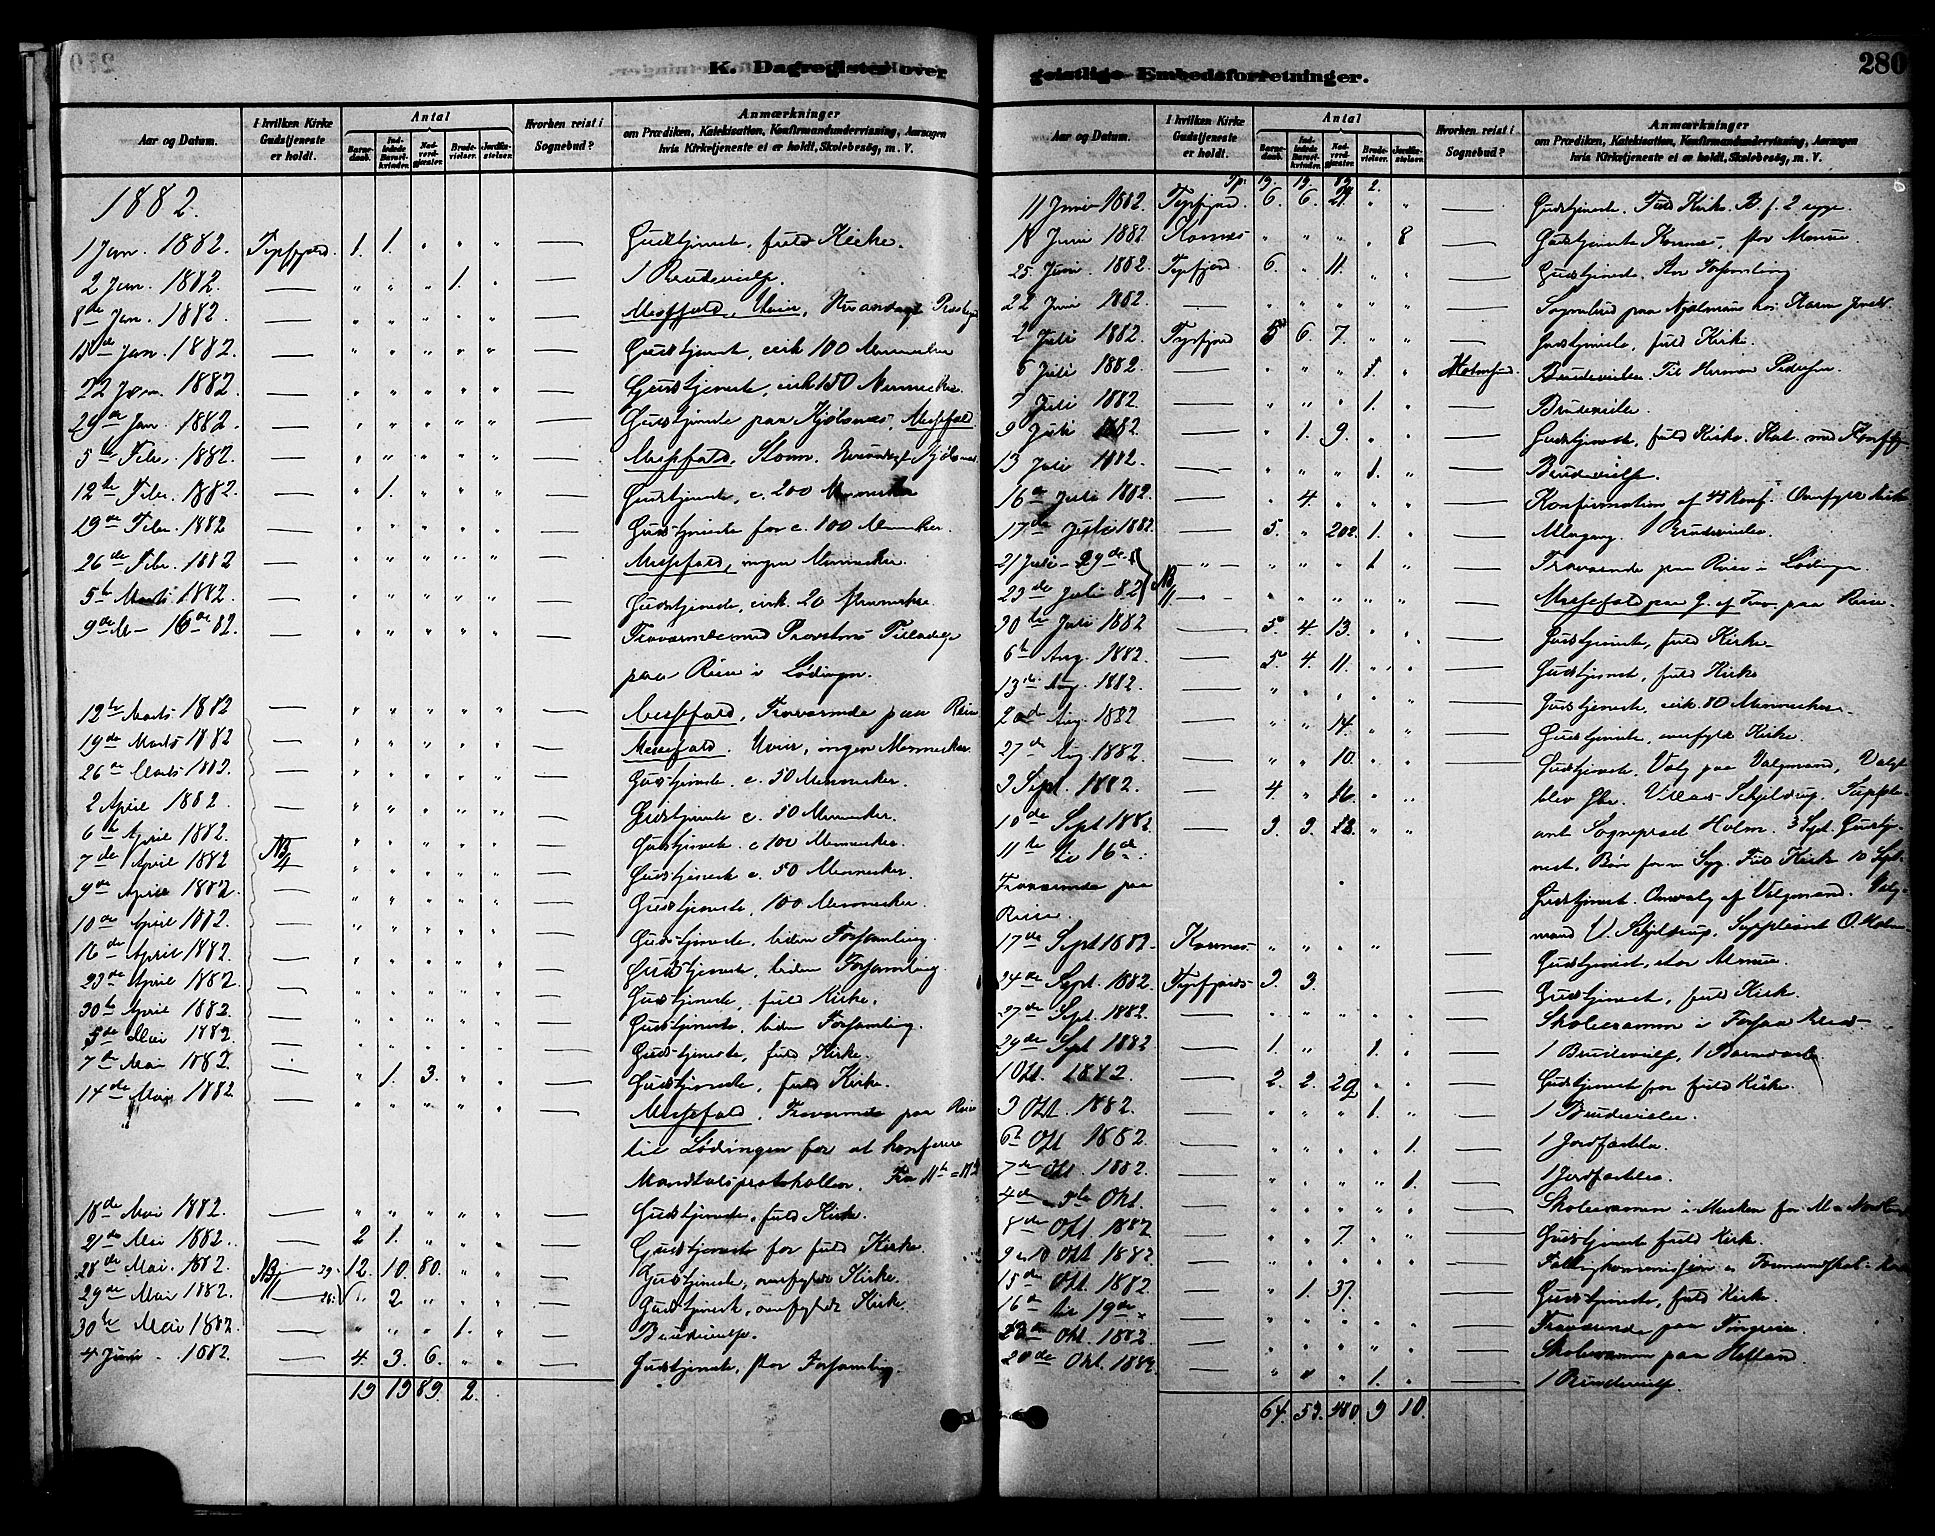 K. Dagregister over
Aar og Datum.
I hvilken Kirke Gudstjeneste er holdt.
Antal
Barnedaab.
Indledede Barselkvinder.
Nadverdgjæster.
Brudevielser.
Jordfæstelser.
Hvorhen reist i Sognebud?
Anmærkninger
om Prædiken, Katekisation, Konfirmandundervisning, Aarsagen
hvis Kirketjeneste ei er holdt, Skolebesøg, m. V.
1882.
1 Jan. 1882. Tysfjord. 1. 1. " " " — Gudstjeneste, fuld Kirke.
2 Jan. 1882. — " " " 1. " — 1 Brudevielse.
8de Jan. 1882. — " " " " " — Messefald, Uveir,
15de Jan. 1882. — " " " " " — Gudstjeneste, cirk 100 Mennesker
22 Jan. 1882 — " " " " " — Gudstjeneste, cirk 150 Mennesker.
29de Jan. 1882 — " " " " " — Gudstjeneste paa Kjøbsnæs, Messefald
5te Febr. 1882. — " " " " " — Messefald, Storm.
12te Febr. 1882. — " 1. " " " — Gudstjeneste, c. 200 Mennesker
19de Febr. 1882 — " " " " " — Gudstjeneste for c. 100 Mennesker.
26de Febr. 1882 — " " " " " — Messefald, ingen Mennesker.
5te Marts 1882. — " " " " " — Gudstjeneste, cirk. 20 Mennesker.
9de M – 16de 82. — " " " " " — Fraværende med Provstens Tilladelse
paa Reise i Lødingen.
12te Marts 1882 — " " " " " — Messefald, Fraværende paa Reise
19de Marts 1882 — " " " " " — Messefald. Uveir, ingen Mennesker.
26de Marts 1882. — " " " " " — Gudstjeneste c. 50 Mennesker.
2 April 1882. — " " " " " — Gudstjeneste c. 50 Mennesker.
6te April 1882. — " " " " " — Gudstjeneste. c 100 Mennesker.
7de April 1882 NB 4 " " " " " — Gudstjeneste c. 50 Mennesker.
9de April 1882. — " " " " " — Gudstjeneste, 100 Mennesker.
10de April 1882. — " " " " " — Gudstjeneste, liden Forsamling.
16de April 1882. — " " " " " — Gudstjeneste, liden Forsamling.
23de April 1882 — " " " " " — Gudstjeneste, fuld Kirke.
30te April 1882. — " " " " " — Gudstjeneste, liden Forsamling.
5de Mai 1882. — " " " " " — Gudstjeneste, fuld Kirke.
7de Mai 1882. — " 1. 3. " " — Gudstjeneste, fuld Kirke.
14de Mai 1882 — " " " " " — Messefald. Fraværende paa Reise
til Lødingen for at konferere
Mandtalsprotokollen.
18de Mai 1882. — " " " " " — Gudstjeneste, fuld Kirke.
21de Mai 1882. — 2 1. " " " — Gudstjeneste for fuld Kirke.
28de Mai. 1882. NB 12. 10. 80. " " — Gudstjeneste, overfyldt Kirke.
29de Mai 1882. — " 2 " " " — Gudstjeneste, overfyldt Kirke.
30te Mai 1882. — " " " 1. " — Brudevielse.
4 Juni 1882. — 4. 3. 6. " " — Gudstjeneste, stor Forsamling
19 19 89. 2.
geistlige Embedsforretninger.
280
Aar og Datum.
I hvilken Kirke Gudstjeneste er holdt.
Antal
Barnedaab.
Indledede Barselkvinder.
Nadverdgjæster.
Brudevielser.
Jordfæstelser.
Hvorhen reist i Sognebud?
Anmærkninger
om Prædiken, Katekisation, Konfirmandundervisning, Aarsagen
hvis Kirketjeneste ei er holdt, Skolebesøg, m. V.
Tp. 19. 19. 89 2.
11 Juni 1882. Tysfjord. 6. 6. 21. " " — Gudstjeneste. Fuld Kirke. B. f. 2 syge.
18 Juni 1882. Korsnes " " " " 8 — Gudstjeneste Korsnes, stor Menne.
25 Juni 1882. Tysfjord. 6. " 11. " " — Gudstjeneste. Stor Forsamling
22 Juni 1882. — " " " " " — Sognebud paa
2 Juli 1882 Tysfjord 5 6. 7. " " — Gudstjeneste, fuld Kirke.
6 Juli 1882. — " " " 1. " Holmsund Brudevielse. Til Herman Pedersen.
7 Juli 1882. — " " " 1. " — Brudevielse
9 Juli 1882. — " 1. 9. " " — Gudstjeneste, fuld Kirke. Kat. med Konf.
13 Juli 1882. — " " " 1. " — Brudevielse.
16de Juli 1882. — " 4. " " " — Konfirmation af 45 Konf. Overfyldt Kirke
17de Juli 1882. — 5. " 202. 1. " — Altergang. Brudevielse.
21 Juli – 29de — " " " 1 " — Fraværende paa Reise i Lødingen.
23de Juli 82 NB — " " " " " — Messefald paa G. af Frav. paa Reise.
30te Juli 1882 — 5. 4. 13. " " — Gudstjeneste, fuld Kirke.
6te Aug. 1882. — 5. 4. 11. " " — Gudstjeneste, fuld Kirke
13de Aug. 1882. — " " " " " — Gudstjeneste, cirk. 80 Mennesker.
20de Aug. 1882 — " " 14. " " — Gudstjeneste, overfyldt Kirke.
27de Aug 1882 — " " 10. " " — Gudstjeneste. Valg paa Valgmand, Valgt
3 Sept. 1882. — 4. " 16. " " — blev Hr. Villars Schjeldrup, Supple-
10de Sept 1882 — 3. 3. 22. " " — ant Sogneprest Holm. 3 Sept. Gudstje-
11te til 16de neste, Bøn for en Syg. Fuld Kirke 10 Sept.
Fraværende paa Gudstjeneste. Omvalg af Valgmand. Valg-
Reise. mand V. Schjeldrup, Suppleant O. Holm.
17de Sept 1882. Korsnes " " " " — Gudstjeneste, stor Menne.
24de Sept. 1882 Tysfjord 3. 3. — Gudstjeneste, fuld Kirke.
27de Sept. 1882. — " " " " " — Skoleexamen i
29de Sept 1882 — 1. " " 1. " — 1 Brudevielse, 1 Barnedaab
1 Okt. 1882. — 2. 2. 29 " " — Gudstjeneste for fuld Kirke.
3 Okt. 1882. — " " " 1. " — 1 Brudevielse
6te Okt 1882 — " " " " 1. — 1 Jordfæstelse
7de Okt. 1882. — " " " " 1. — 1 Jordfæstelse.
4de – 5te Okt. — " " " " " — Skoleexamen i
8de Okt. 1882 — " " 7. " " — Gudstjeneste fuld Kirke.
9 – 10 Okt 1882.
15de Okt 1882 — " 1. 37. " " — Gudstjeneste, fuld Kirke.
16de til 19de — " " " " " — Fraværende paa Tingreise.
Okt 1882 — " " " " " — Skoleexamen paa
20de Okt. 1882. — " " " 1. " — 1 Brudevielse.
64. 53. 480. 9 10.